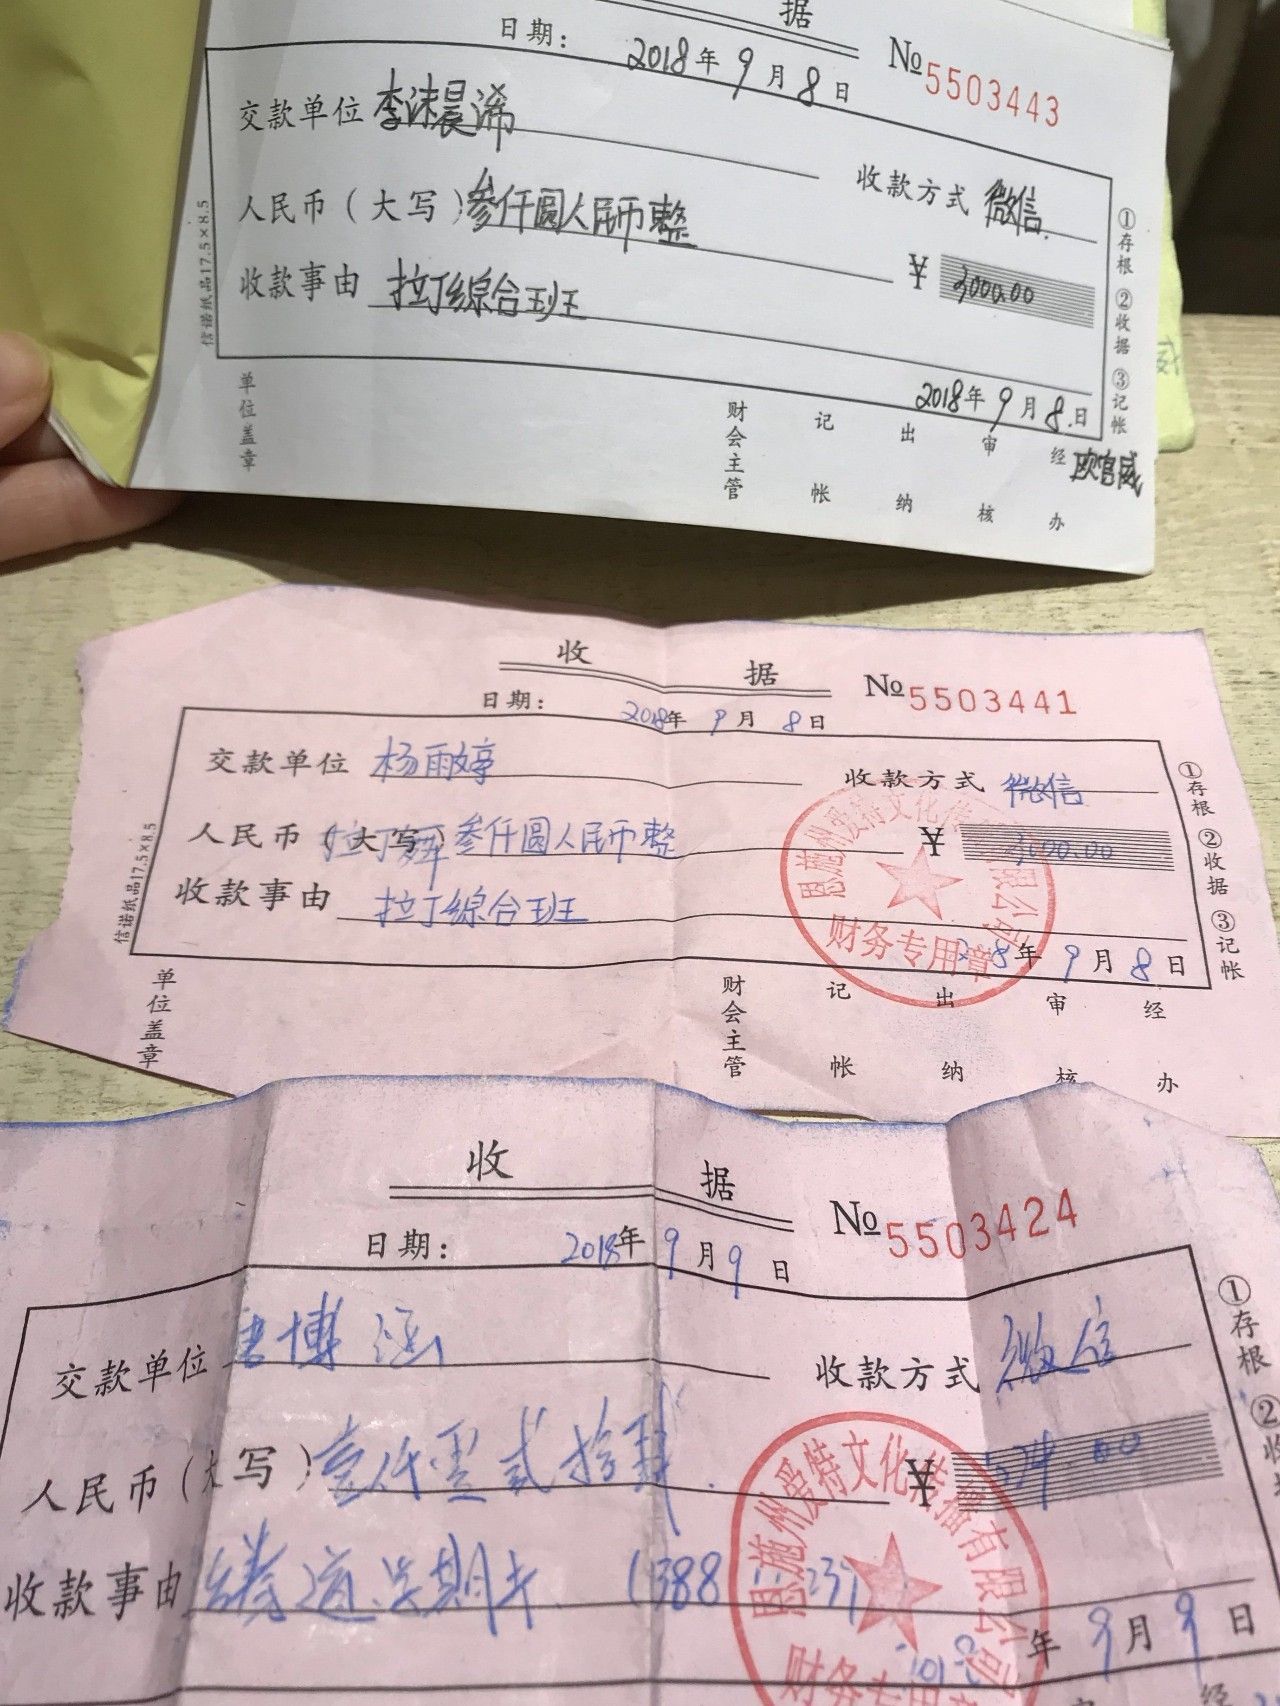 据
日期： 2018年9月8日 №5503443
交款单位 李沫晨浠 收款方式 微信
人民币（大写）叁仟圆人民币整 ¥ 3000.00
收款事由 拉丁综合班
2018年9月8日
单位盖章 财会主管 记帐 出纳 审核 经办 欧宫威
①存根 ②收据 ③记帐
信诺纸品17.5×8.5
收据
日期： 2018年9月8日 №5503441
交款单位 杨雨婷 收款方式 微信
人民币（大写）叁仟圆人民币整 ¥ 3000.00
拉丁舞
收款事由 拉丁综合班
2018年9月8日
恩施州爱特文化传播有限公司
财务专用章
单位盖章 财会主管 记帐 出纳 审核 经办
①存根 ②收据 ③记帐
信诺纸品17.5×8.5
收据
日期： 2018年9月9日 №5503424
交款单位 唐博涵 收款方式 微信
人民币（大写） ¥
收款事由 (1388
年9月9日
恩施州爱特文化传播有限公司
财务专用章
①存根 ②收
审 经